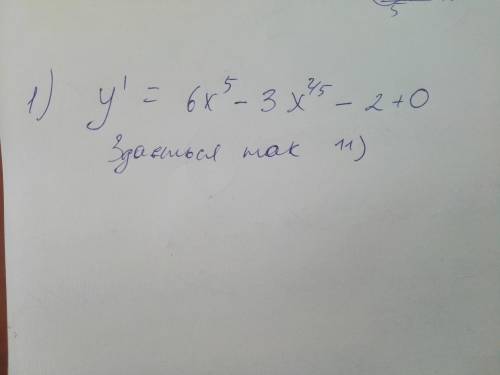 1) y' = 6x^5 - 3x^{2/5} - 2 + 0
Здається так 11)